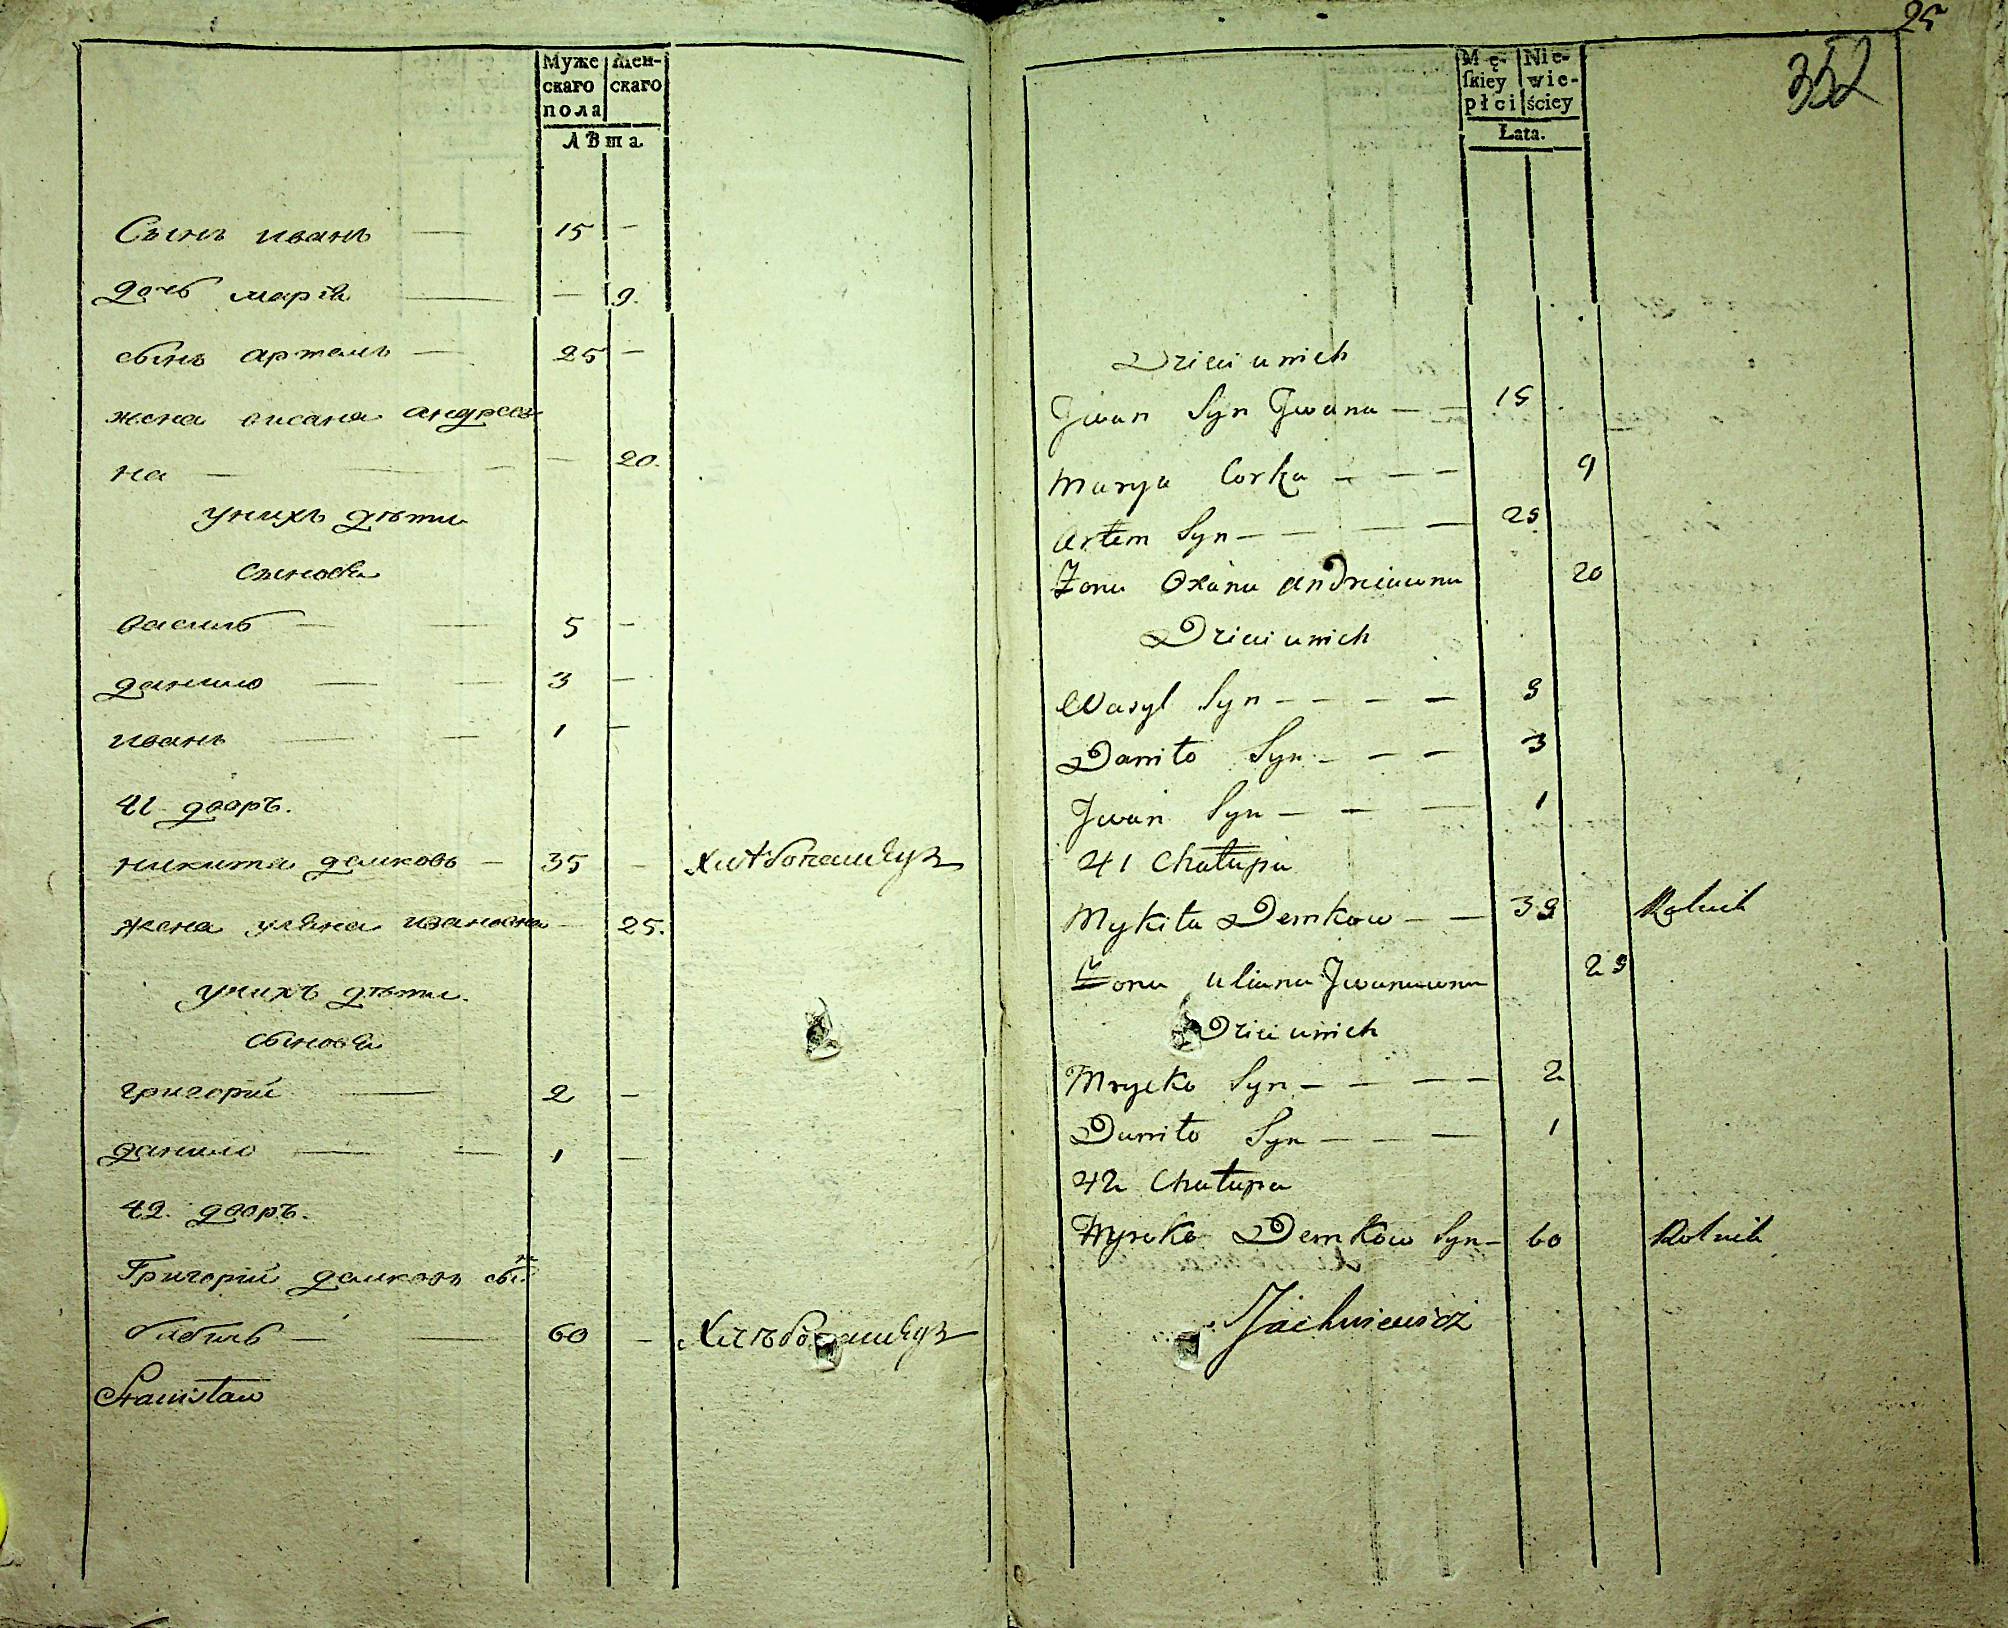 Муже Жен-
скаго скаго
пола
ЛѢта.
Сынъ иванъ — 15 —
дочь марія — — 9.
сынъ артемъ — 25 —
жена оксана андреев
на — — 20.
унихъ дѣти
сыновя
василь — 5 —
данило — — 3 —
иванъ — — 1 —
41 дворъ.
никита демковъ — 35 — Хлѣбопашецъ
жена уляна ивановна — 25.
унихъ дѣти.
сыновя
григорій — 2 —
данило — — 1 —
42. дворъ.
Григорій демковъ сынъ
60 — Хлѣбопашецъ
Stanisław
25
352
Mę- Nie-
skiey wie-
płci ściey
Łata.
Dzieci u nich
Jwan Syn Jwana — — 15
Marya Corka — — — 9
Artem Syn — — — — 25
Żona Oxana Andreiewna 20
Dzieci u nich
Wasyl Syn — — — — 5
Daniło Syn — — — 3
Jwan Syn — — — 1
41 Chałupa
Mykita Demkow — — 35 Rolnik
Żona uliana Jwanowna 25
Dzieci u nich
Hryćko Syn — — — — 2
Daniło Syn — — — 1
42 Chałupa
Hryćko Demkow Syn — 60 Rolnik
Jachniewicz